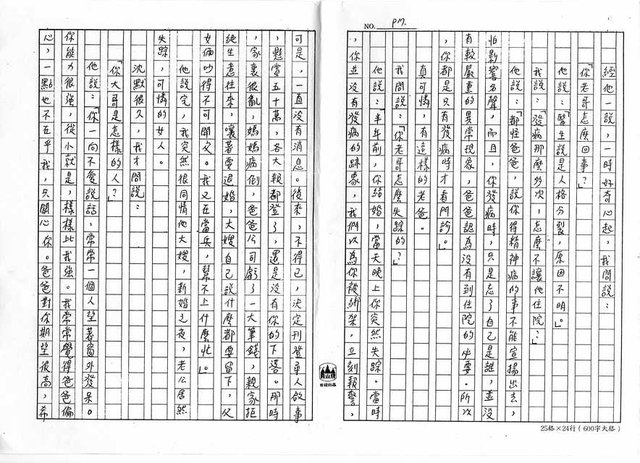 NO. P17.
經他一說，一時好奇心起，我問說：
「你老哥怎麼回事？」
他說：「醫生說是人格分裂，原因不明。」
我說：「發病那麼多次，怎麼不讓他住院？」
他說：「都怪爸爸，說你得精神病的事不能宣揚出去，
怕影響名聲，而且，你發病時，只是忘了自己是誰，並沒
有較嚴重的異常現象，爸爸認為沒有到住院的必要。所以
，你都是只有發病時才有門診。」
真可憐，有這樣的老爸。
我問說：「你老哥怎麼失踪的？」
他說：「半年前，你結婚，當天晚上你突然失踪。當時
，你並沒有發病的跡象，我們以為你被綁架，立刻報警，
可是，一直沒有消息。後來，不得已，決定刊登尋人啟事
，懸賞五十萬，各大報都登了，還是沒有你的下落。那時
，家裏很亂，媽媽病倒，爸爸公司虧了一大筆錢，親家拒
絕生意往來，嚷著要退婚，大嫂自己說什麼都要留下，父
女倆吵得不可開交。我又在當兵，幫不上什麼忙。」
他說完，我突然很同情他大嫂，新婚之夜，老公居然
失踪，可憐的女人。
沈默很久，我才問說：
「你大哥是怎樣的人？」
他說：「你一向不愛說話，常常一個人望著窗外發呆。
你能力很強，從小就是，樣樣比我強。我常常覺得爸爸偏
心，一點也不在乎我，只關心你。爸爸對你期望很高，希
25格×24行（600字大格）